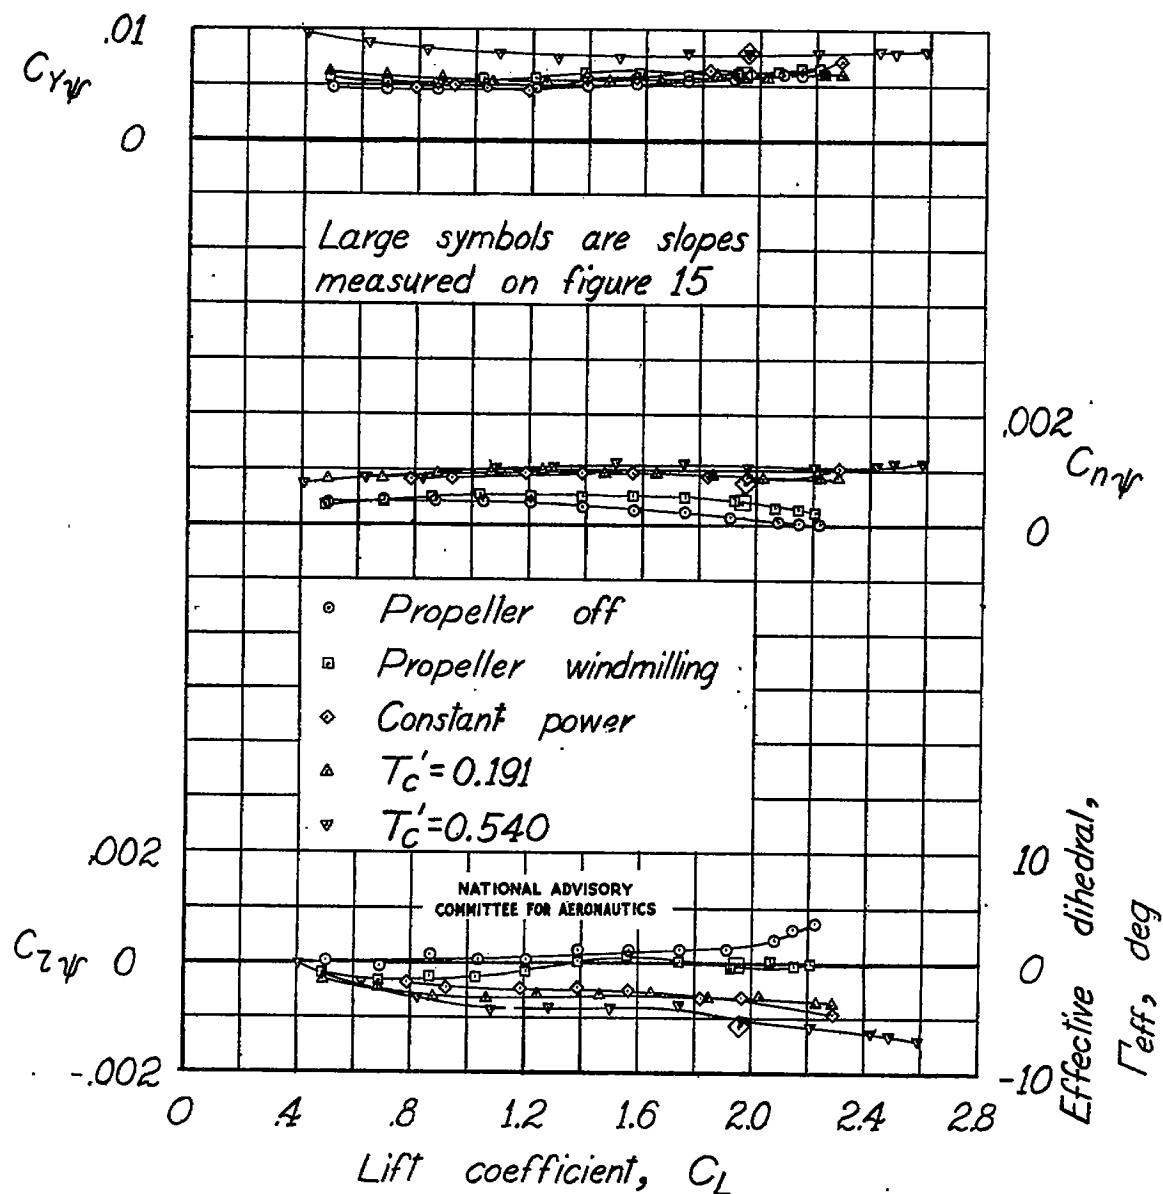 .01
CYψ
0
Large symbols are slopes
measured on figure 15
.002
Cnψ
0
Propeller off
Propeller windmilling
Constant power
Tc'=0.191
Tc'=0.540
.002
Clψ 0
-.002
NATIONAL ADVISORY
COMMITTEE FOR AERONAUTICS
10
0
-10
Effective dihedral,
Γeff, deg
0 .4 .8 1.2 1.6 2.0 2.4 2.8
Lift coefficient, CL